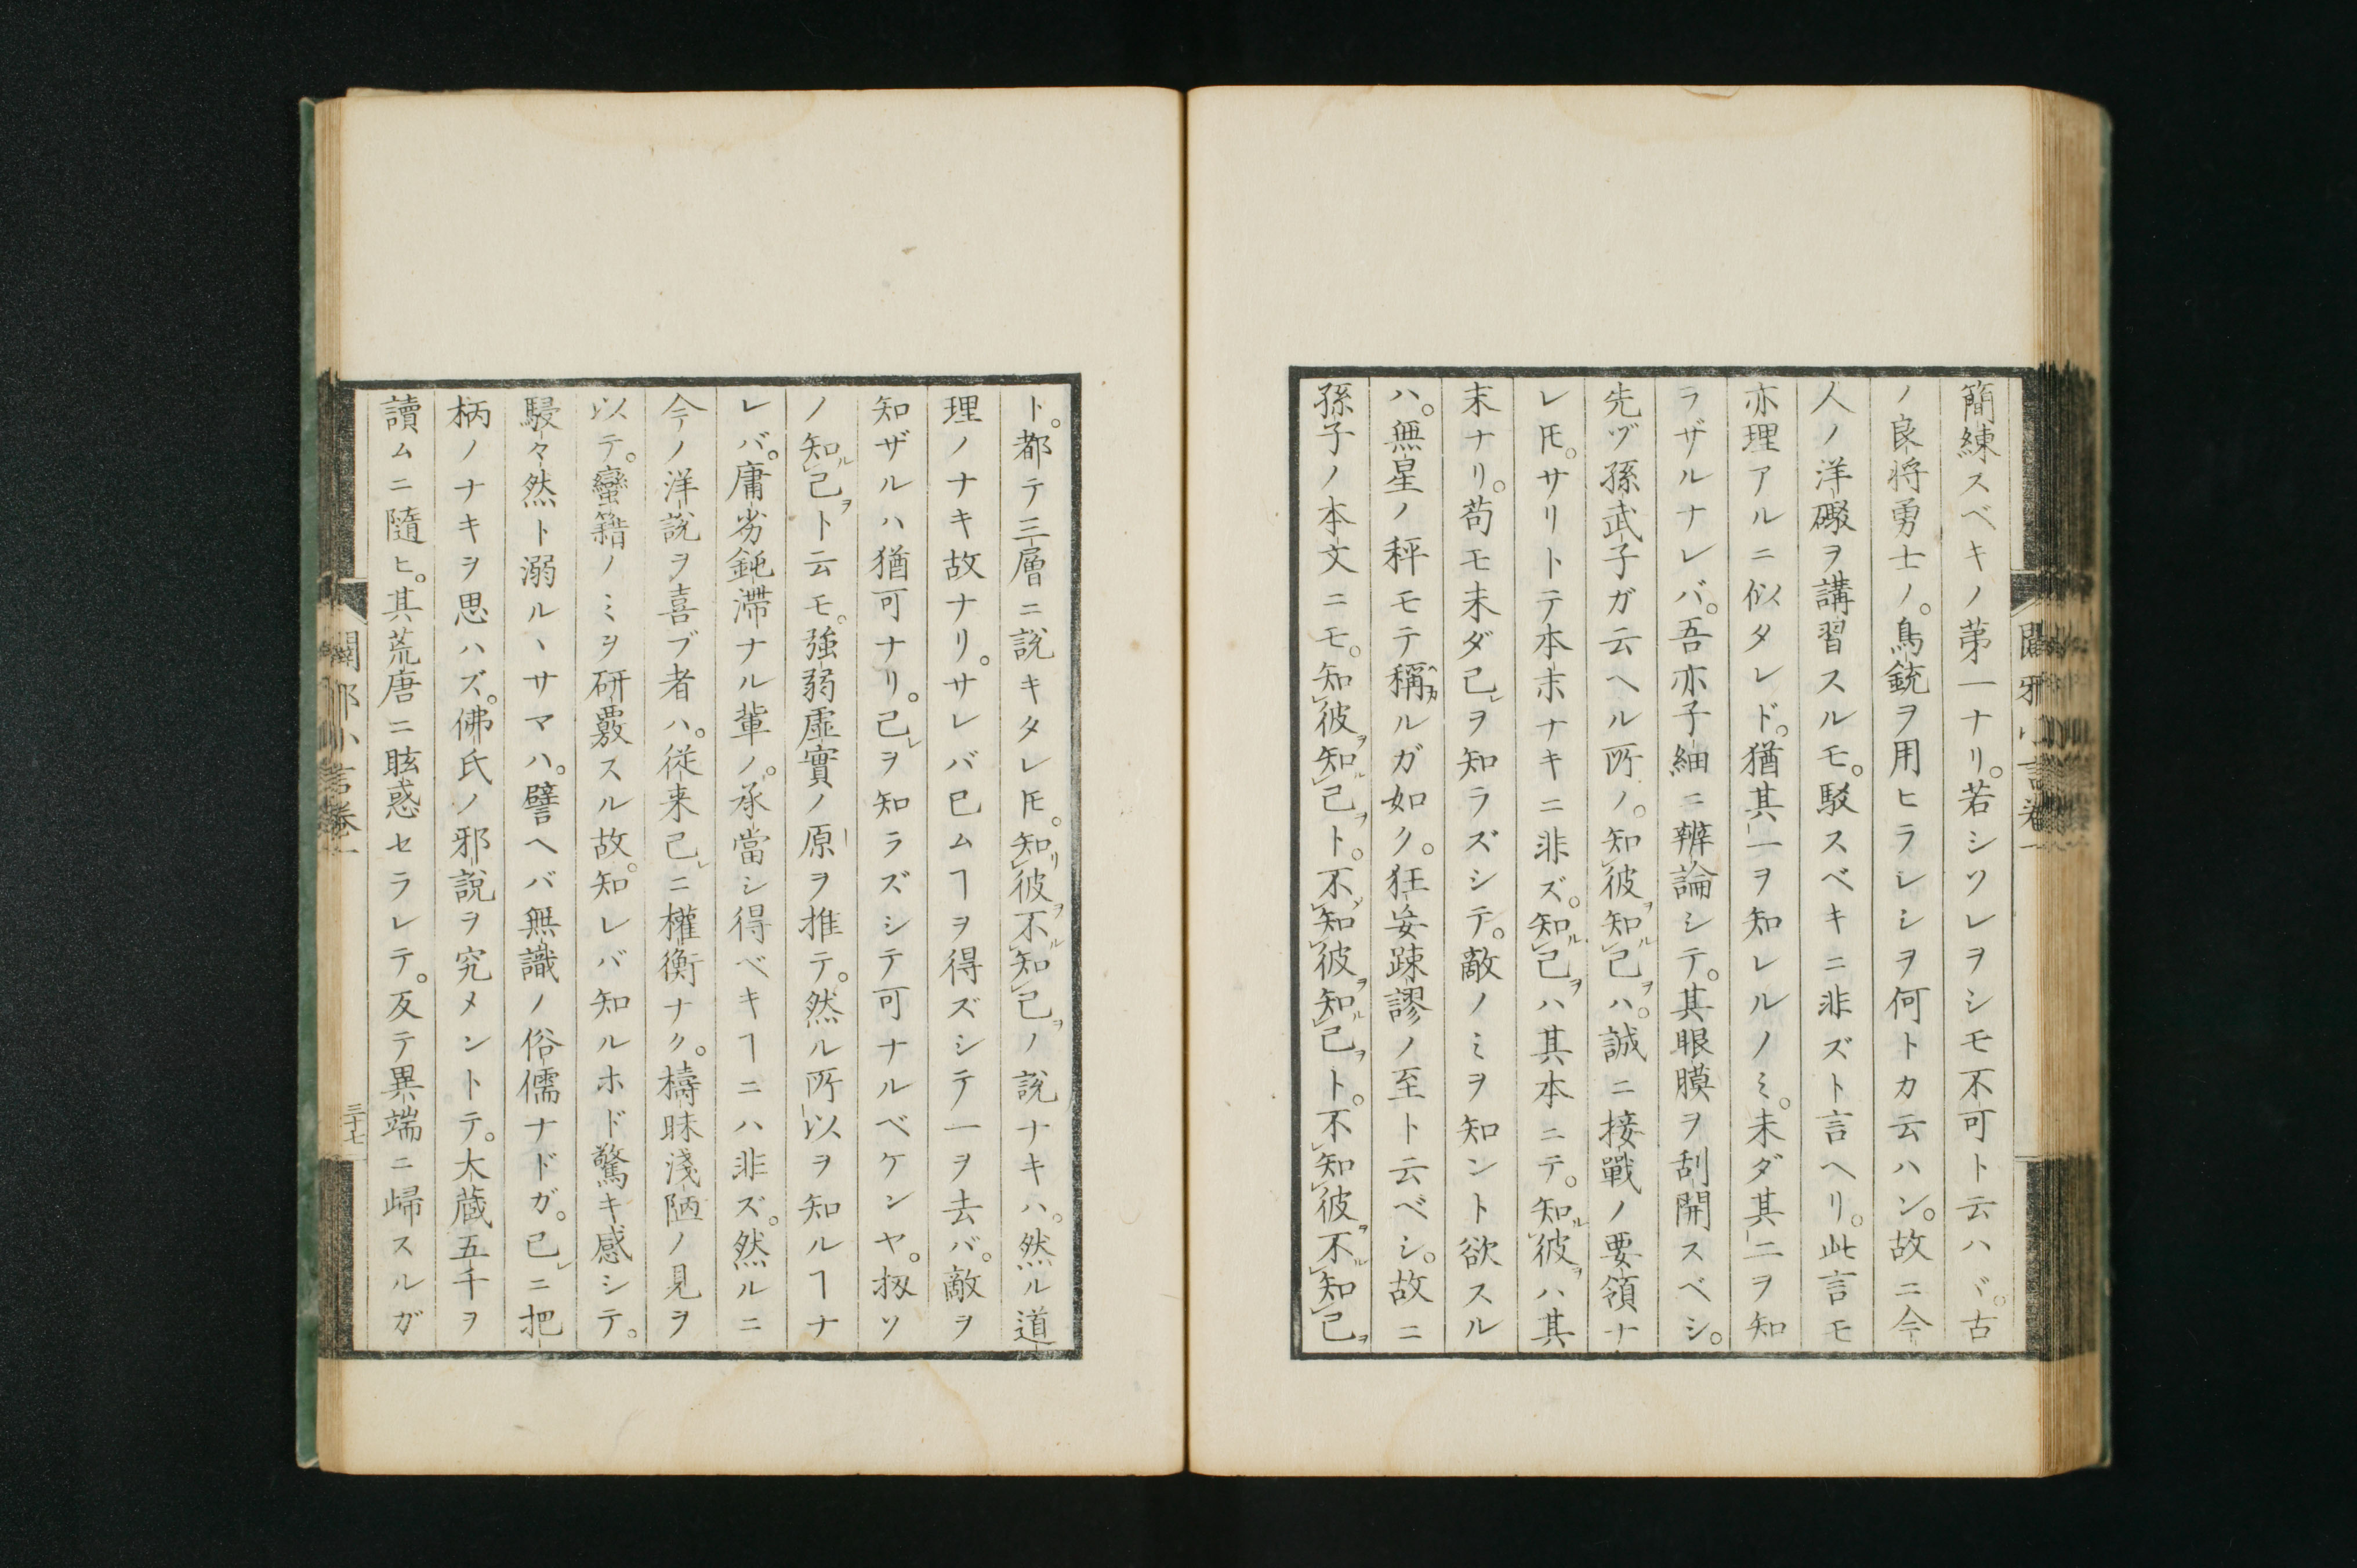 簡練スベキノ苐一ナリ。若シソレヲシモ不可ト云ハヾ。古
ノ良将勇士ノ。鳥銃ヲ用ヒラレシヲ何トカ云ハン。故ニ今
人ノ洋礟ヲ講習スルモ。駁スベキニ非ズト言ヘリ。此言モ
亦理アルニ似タレド。猶其一ヲ知レルノミ。未ダ其二ヲ知
ラザルナレバ。吾亦子細ニ辨論シテ。其眼膜ヲ刮開スベシ。
先ヅ孫武子ガ云ヘル所ノ。知彼ヲ知ル己ヲハ。誠ニ接戰ノ要領ナ
レ𪜈。サリトテ本末ナキニ非ズ。知ル己ヲハ其本ニテ。知ル彼ヲハ其
末ナリ。苟モ未ダ己レヲ知ラズシテ。敵ノミヲ知ント欲スル
ハ。無星ノ秤モテ稱ルガ如ク。狂妄踈謬ノ至ト云ベシ。故ニ
孫子ノ本文ニモ。知彼ヲ知ル己ヲト。不知彼ヲ知ル己ヲト。不知彼ヲ不ル知己ヲ
ト。都テ三層ニ説キタレ𪜈。知リ彼ヲ不ル知己ヲノ説ナキハ。然ル道
理ノナキ故ナリ。サレバ已ムヿヲ得ズシテ一ヲ去バ。敵ヲ
知ザルハ猶可ナリ。己レヲ知ラズシテ可ナルベケンヤ。扨ソ
ノ知ル己ヲト云モ。強弱虛實ノ原ヲ推テ。然ル所以ヲ知ルヿナ
レバ。庸劣鈍滯ナル輩ノ。承當シ得ベキヿニハ非ズ。然ルニ
今ノ洋説ヲ喜ブ者ハ。従来己レニ權衡ナク。檮昧淺陋ノ見ヲ
以テ。蠻籍ノミヲ研覈スル故。知レバ知ルホド驚キ感シテ。
駸々然ト溺ルヽサマハ。譬ヘバ無識ノ俗儒ナドガ。已レニ把
柄ノナキヲ思ハズ。佛氏ノ邪説ヲ究メントテ。大蔵五千ヲ
讀ムニ隨ヒ。其荒唐ニ眩惑セラレテ。反テ異端ニ歸スルガ
闢邪小言卷一
三十七